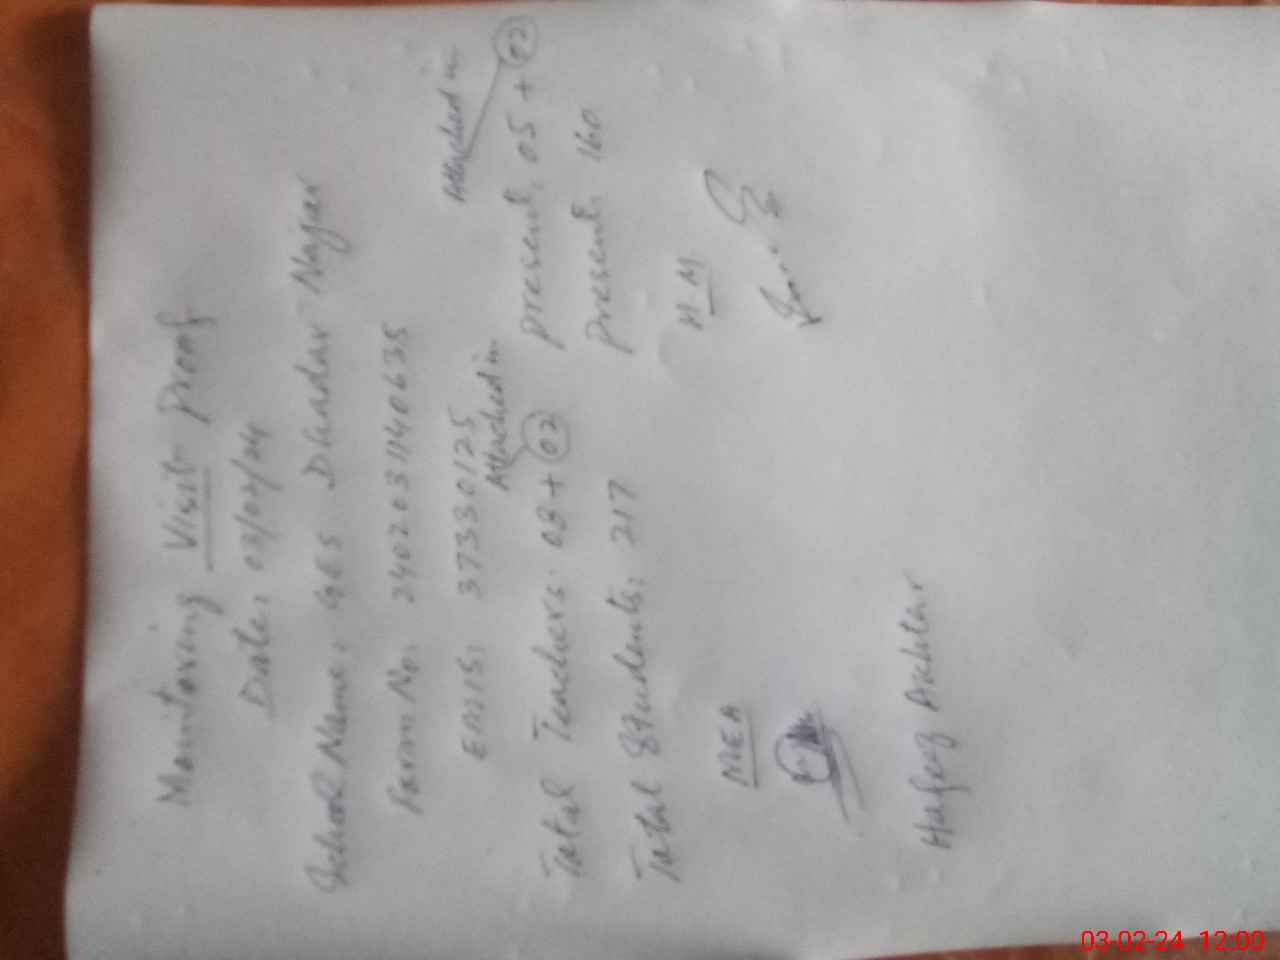 Monitoring Visit Proof
Date: 03/02/24
School Name: GES Dhadar Nagar
Form No: 2402031140635
EMIS: 37330125
Attached in
Attached in
Total Teachers: 03+ 02 present: 05 + 02
Total Students: 217 Present: 160
MEA H-M
Hafeez Akhtar
03-02-24 12:00